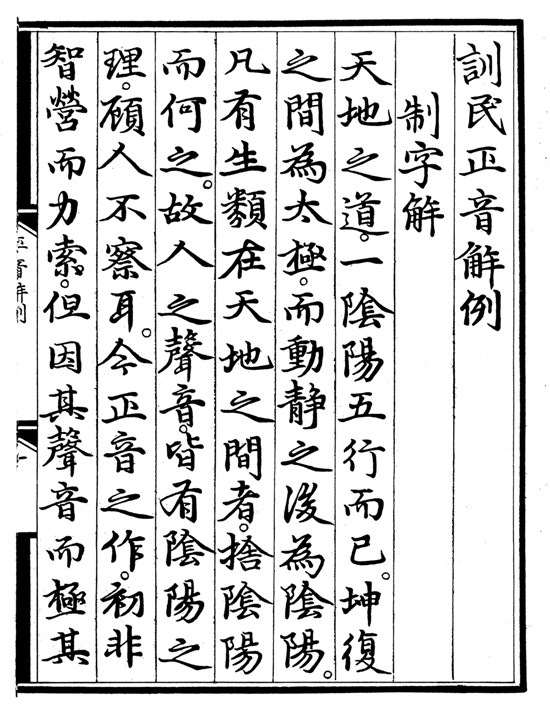 訓民正音解例
制字解
天地之道。一陰陽五行而已。坤復
之間為太極。而動静之後為陰陽。
凡有生類在天地之間者。捨陰陽
而何之。故人之聲音。皆有陰陽之
理。顧人不察耳。今正音之作。初非
智營而力索。但因其聲音而極其
正音解例
一